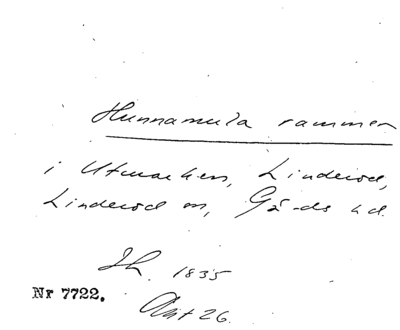 Hunnamula rammen
i Utmarken, Linderöd,
Linderöd sn, Gärds hd.
Sk. 1835
Nr 7722.
Akt 26.